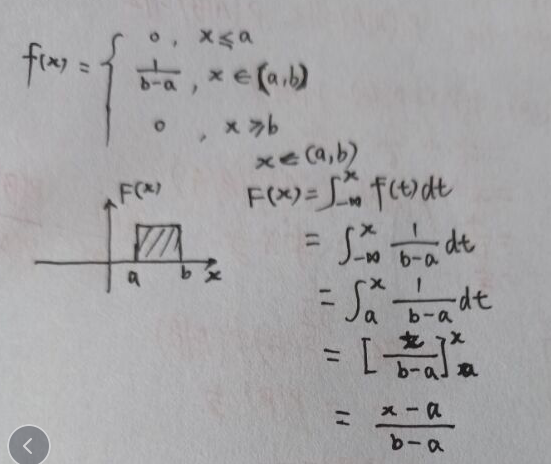 f(x) = { 0, x ≤ a
1/(b-a), x ∈ (a,b)
0, x ≥ b
x ∈ (a,b)
F(x)
a b x
F(x) = ∫_{-∞}^{x} f(t) dt
= ∫_{-∞}^{x} 1/(b-a) dt
= ∫_{a}^{x} 1/(b-a) dt
= [t/(b-a)]_{a}^{x}
= (x-a)/(b-a)